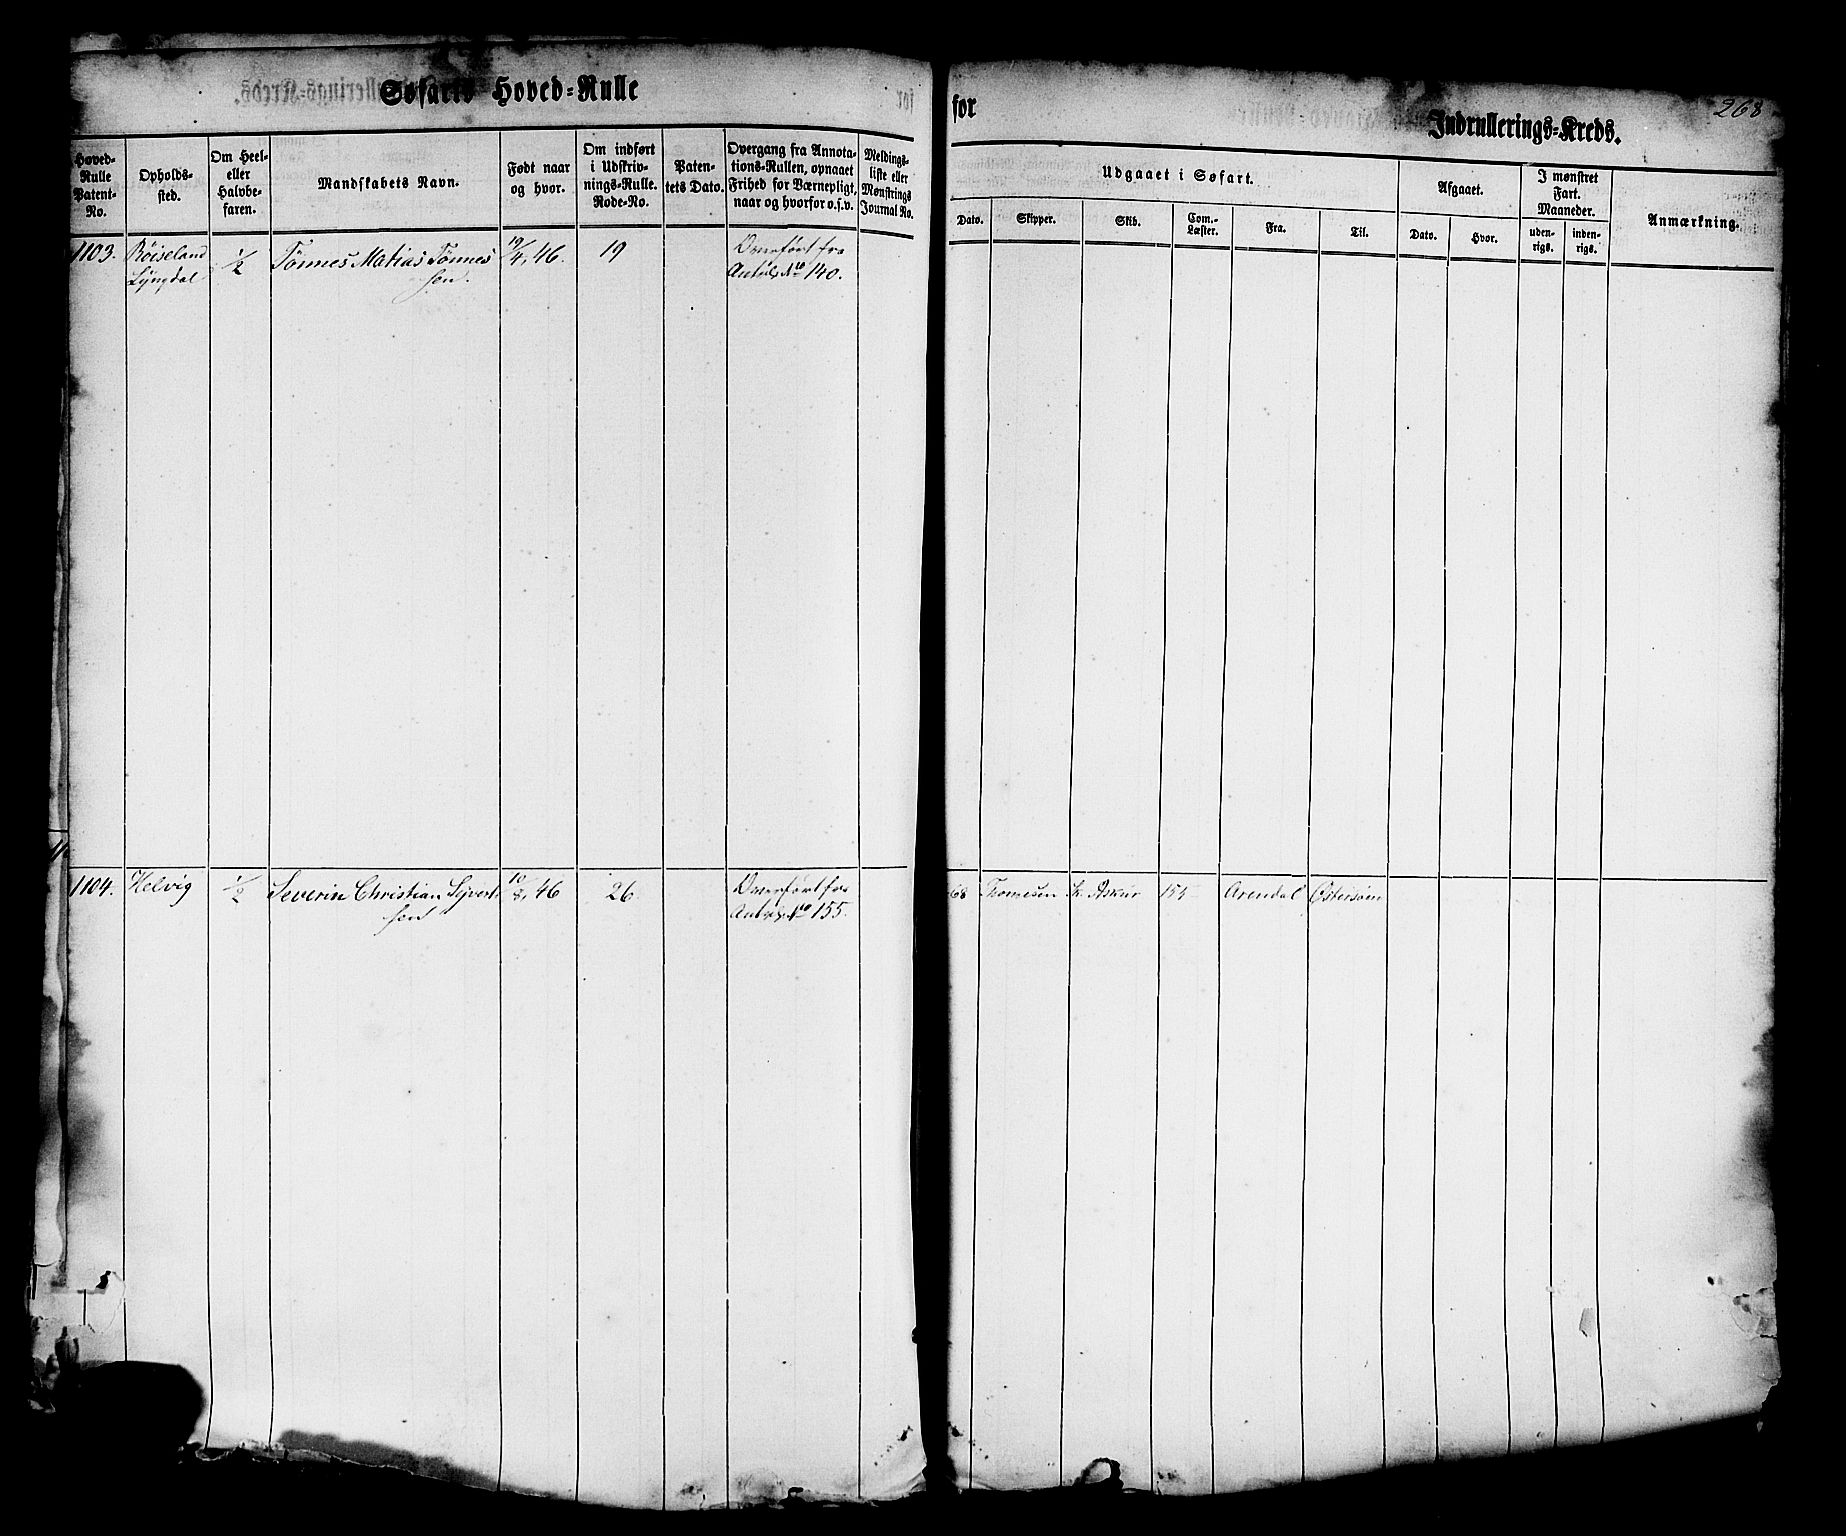 Søfarts Hoved-Rulle
for
Indrullerings-Kreds.
268
Hoved-
Rulle
Patent-
No.
Opholds-
sted.
Om Heel-
eller
Halvbe-
faren.
Mandskabets Navn.
Født naar
og hvor.
Om indført
i Udskriv-
nings-Rulle.
Rode-No.
Paten-
tets Dato.
Overgang fra Annota-
tions-Rullen, opnaaet
Frihed for Værnepligt,
naar og hvorfor o.s.v.
Meldings-
liste eller
Mønstrings
Journal No.
Udgaaet i Søfart.
Dato.
Skipper.
Skib.
Com.-
Læster.
Fra.
Til.
Afgaaet.
Dato.
Hvor.
I mønstret
Fart.
Maaneder.
uden-
rigs.
inden-
rigs.
Anmærkning.
1103.
Röiseland
Lyngdal
1/2
Tönnes Matias Tönnes
sen.
19/4, 46.
19
Overført fra
No 140.
1104.
Helvig
1/2
Severin Christian Sijvert
sen
10/8, 46
26
Overført fra
No 155.
68
Thomesen
Askur
155
Arendal
Østersøen